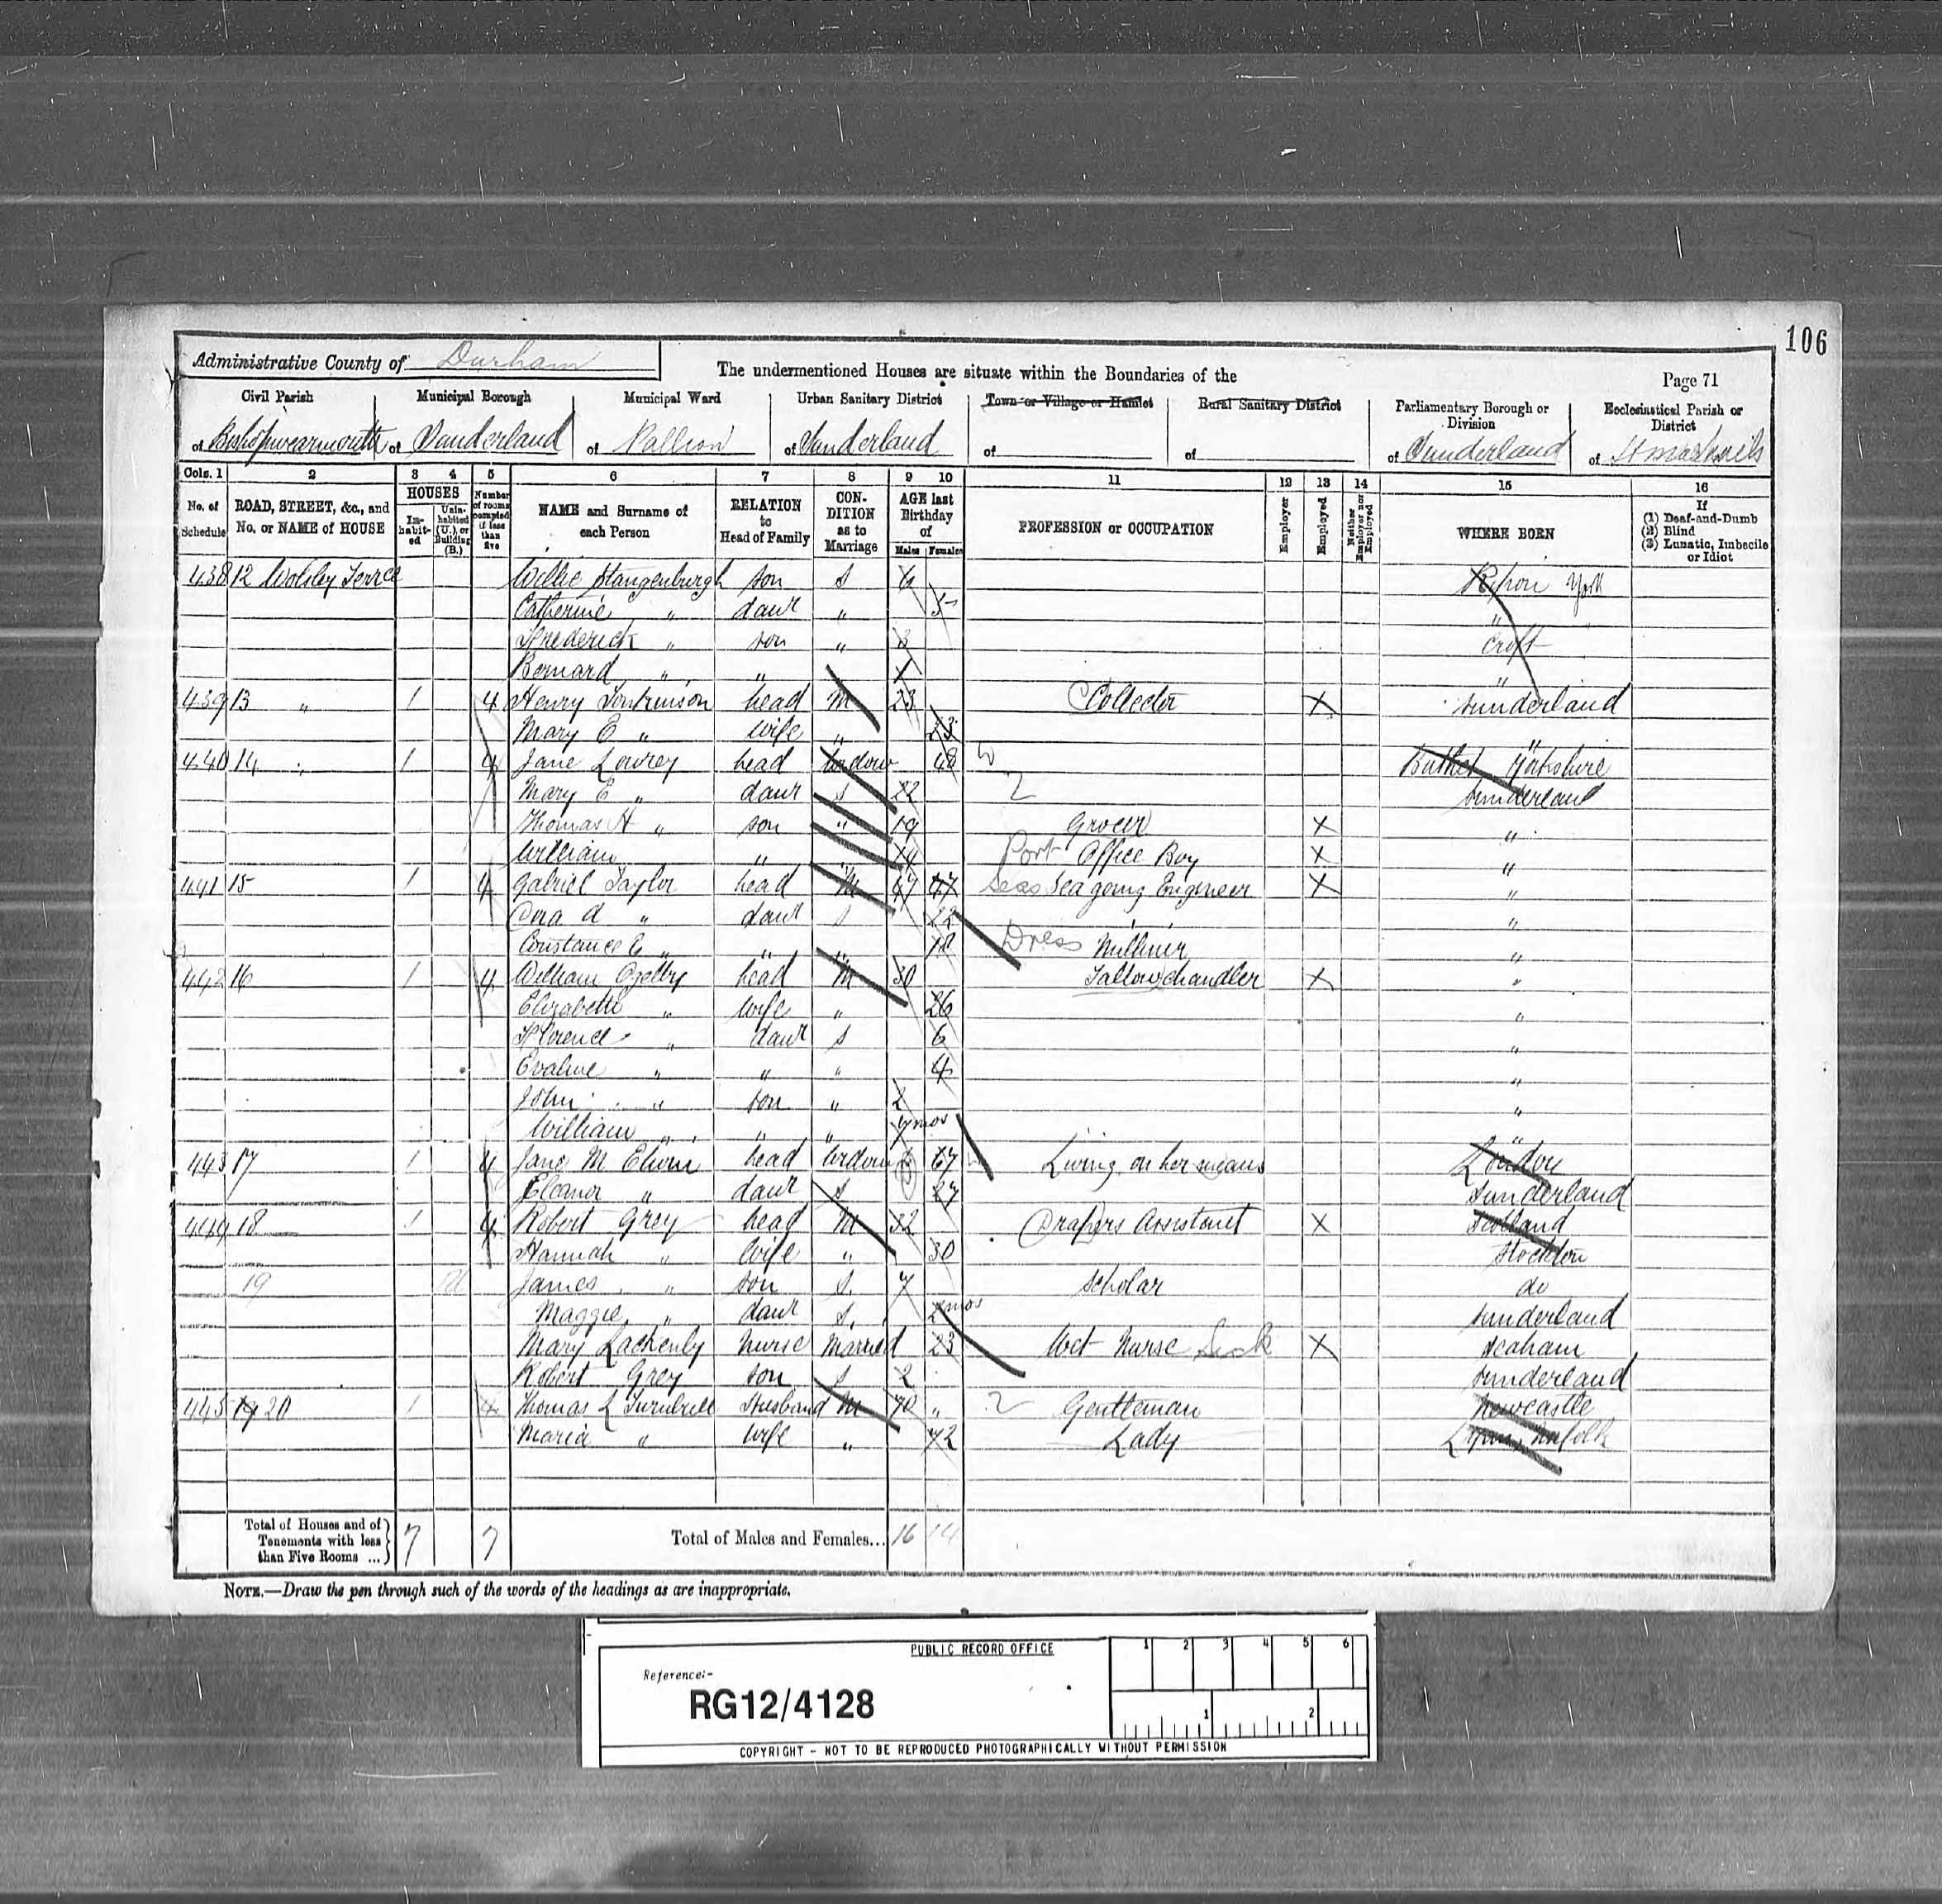 106
Administrative County of Durham
The undermentioned Houses are situate within the Boundaries of the
Page 71
Civil Parish of Bishopwearmouth
Municipal Borough of Sunderland
Municipal Ward of Pallion
Urban Sanitary District of Sunderland
Town or Village or Hamlet of
Rural Sanitary District of
Parliamentary Borough or Division of Sunderland
Ecclesiastical Parish or District of
Cols. 1 2 3 4 5 6 7 8 9 10 11 12 13 14 15 16
No. of Schedule
ROAD, STREET, &c., and No. or NAME of HOUSE
HOUSES
In-habit-ed
Unin-habited (U.), or Building (B.)
Number of rooms occupied if less than five
NAME and Surname of each Person
RELATION to Head of Family
CON-DITION as to Marriage
AGE last Birthday of
Males Females
PROFESSION or OCCUPATION
Employer
Employed
Neither Employer nor Employed
WHERE BORN
If (1) Deaf-and-Dumb (2) Blind (3) Lunatic, Imbecile or Idiot
438 12 Wolsley Terrce Willie son S 6 Ripon York
Catherine " daur " 5 "
Frederick " son " 3 Croft
Bernard " " 1 "
439 13 " 1 4 Henry head M 23 Collector X Sunderland
Mary E " wife " 23 "
440 14 " 1 4 Jane Lowrey head Widow 48 W Yorkshire
Mary E " daur S 22 Sunderland
Thomas H " son " 19 Grocer X "
William " " 14 Office Boy X "
441 15 1 4 Gabriel Taylor head M 47 47 Seas Sea going Engineer X "
daur S 22 "
Constance E " " " 18 Dress Milliner "
442 16 1 4 William Ogelby head M 30 Tallowchandler X "
Elizabeth " wife " 26 "
Florence " daur S 6 "
Evaline " " " 4 "
John " son " 2 "
William " " " 7 mos "
443 17 1 4 Jane M head Widow 67 Living on her means London
Eleanor " daur S 27 Sunderland
444 18 1 4 Robert Grey head M 32 Drapers Assistant X Scotland
Hannah " wife " 30 Stockton
19 U James " son S. 7 Scholar do
Maggie " daur S. 2 mos Sunderland
Mary Lackenby Nurse Married 23 Wet Nurse Sick X Seaham
Robert Grey son S 2 Sunderland
445 19 20 1 4 Thomas L Turnbull Husband M 70 " Gentleman Newcastle
Maria " wife " 72 Lady Lynn, Norfolk
Total of Houses and of Tenements with less than Five Rooms ... 7 7
Total of Males and Females... 16 14
NOTE.—Draw the pen through such of the words of the headings as are inappropriate.
PUBLIC RECORD OFFICE
1 2 3 4 5 6
Reference:-
RG12/4128
1 2
COPYRIGHT - NOT TO BE REPRODUCED PHOTOGRAPHICALLY WITHOUT PERMISSION